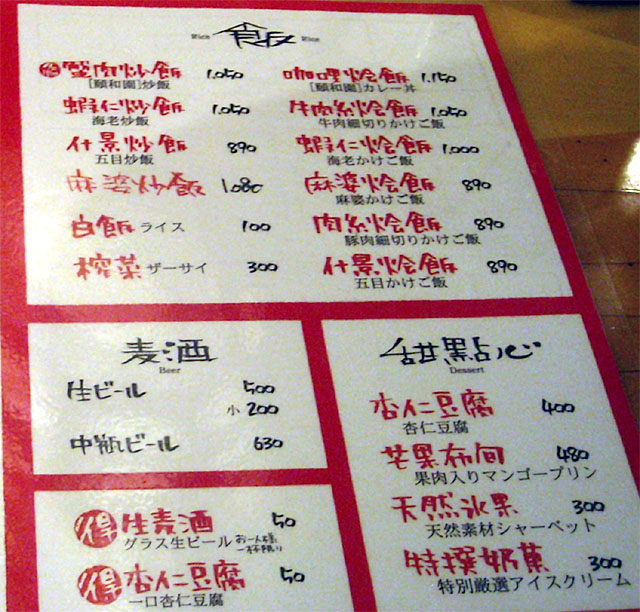 Rice 飯 Rice
得 蟹肉炒飯 1,050
[頤和園]炒飯
蝦仁炒飯 1,050
海老炒飯
什景炒飯 890
五目炒飯
麻婆炒飯 1,080
白飯 ライス 100
榨菜 ザーサイ 300
咖哩烩飯 1,150
[頤和園]カレー丼
牛肉絲烩飯 1,050
牛肉細切りかけご飯
蝦仁烩飯 1,000
海老かけご飯
麻婆烩飯 890
麻婆かけご飯
肉絲烩飯 890
豚肉細切りかけご飯
什景烩飯 890
五目かけご飯
麦酒
Beer
生ビール 500
小 200
中瓶ビール 630
得 生麦酒 50
グラス生ビール お一人様一杯限り
得 杏仁豆腐 50
一口杏仁豆腐
甜點心
Dessert
杏仁豆腐 400
杏仁豆腐
芒果布甸 480
果肉入りマンゴープリン
天然氷果 300
天然素材シャーベット
特撰奶菓 300
特別厳選アイスクリーム